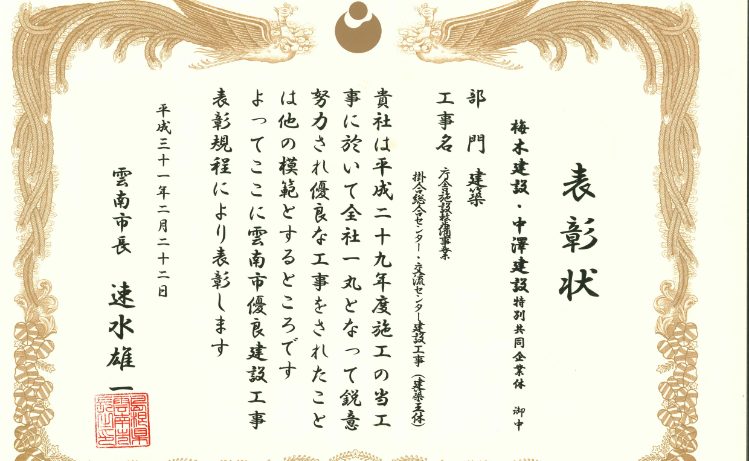 表彰状
梅木建設・中澤建設特別共同企業体 御中
部門 建築
工事名 庁舎施設整備事業
掛合総合センター・交流センター建設工事(建築主体)
貴社は平成二十九年度施工の当工
事に於いて全社一丸となって鋭意
努力され優良な工事をされたこと
は他の模範とするところです
よってここに雲南市優良建設工事
表彰規程により表彰します
平成三十一年二月二十二日
雲南市長 速水雄一